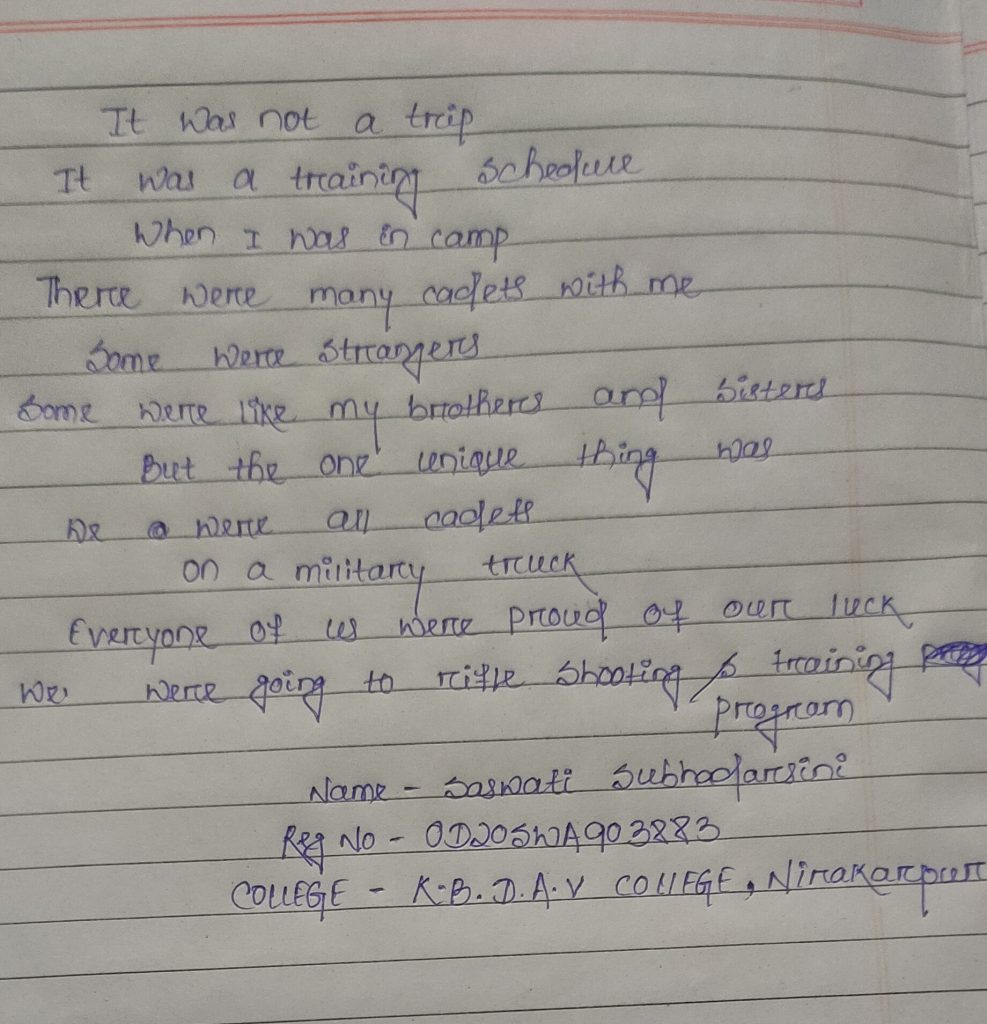 It was not a trip
It was a training schedule
When I was in camp
There were many cadets with me
Some were strangers
Some were like my brothers and sisters
But the one unique thing was
We were all cadets
on a military truck
Everyone of us were proud of our luck
We were going to rifle shooting training
program
Name - Saswati Subhadarsini
Reg No - OD20SWA903883
COLLEGE - K.B.D.A.V COLLEGE, Nirakarpur